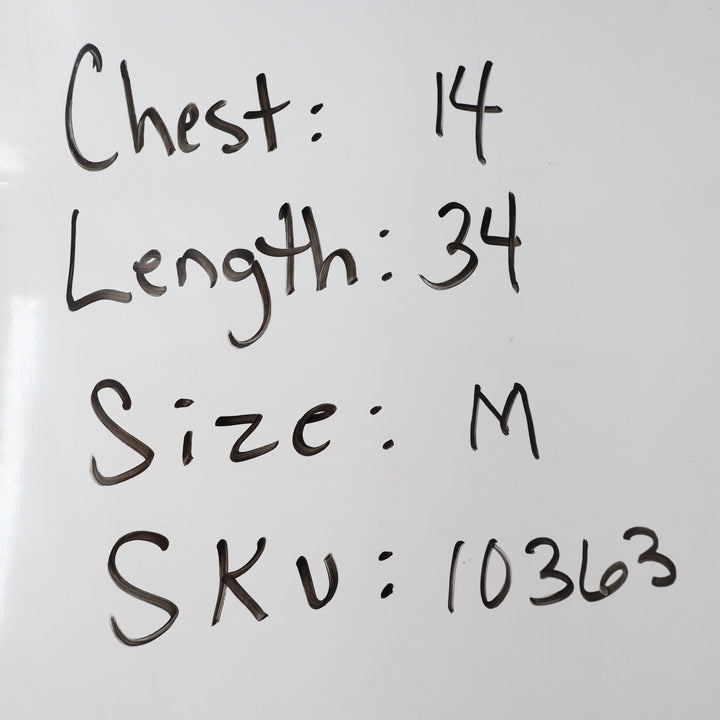 Chest: 14
Length: 34
Size: M
SKU: 10363